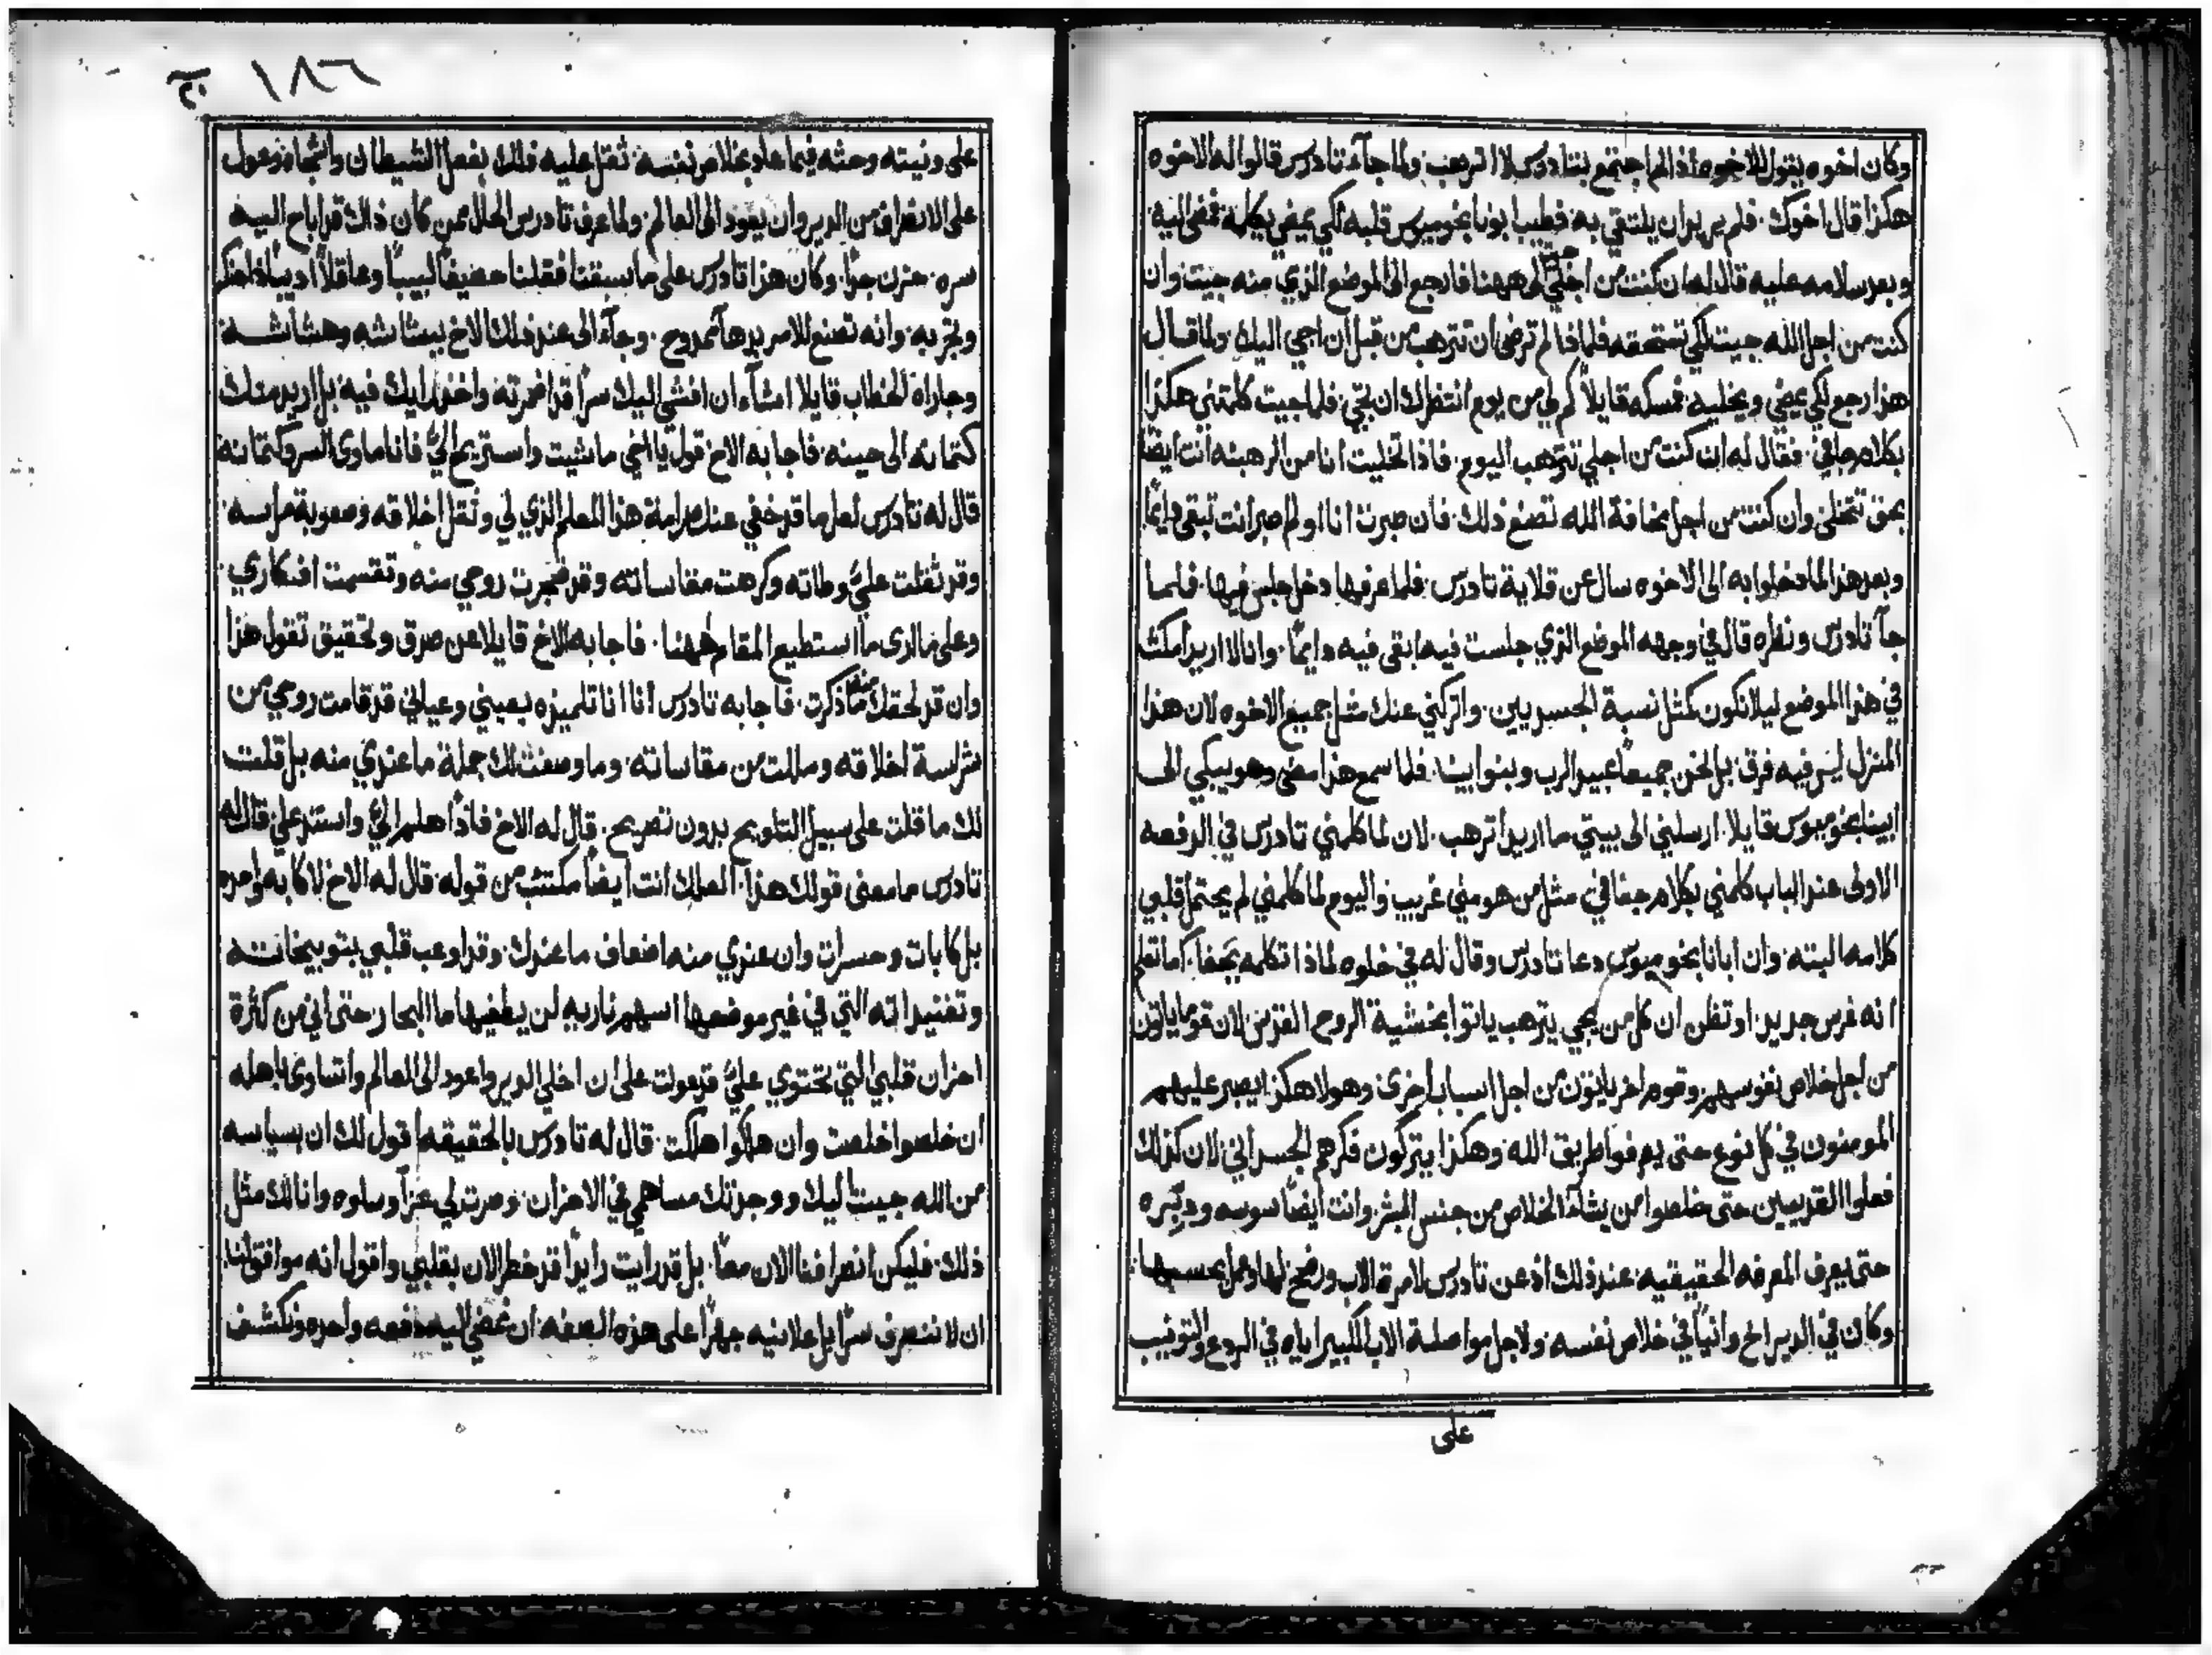 وكان اخوه يقول للاخوه اذا لم اجتمع بتادرس لا اترهب. ولما جآء تادرس قالوا له الاخوه
هكذا قال اخوك. فلم يريد ان يلتقي به. فطيب ابونا بخوميوس قلبه لكي يمضي يكلمه فمضى اليه
وبعد سلامه عليه قال له ان كنت من اجلي جيت الى ههنا فارجع الى الموضع الذي منه جيت وان
كنت من اجل الله جيت لكي تستحقه فلماذا لم ترضى ان تترهب من قبل ان اجي اليك. ولما قال
هذا رجع لكي يمضي ويخليه. فمسكه قايلاً كم لي من يوم انتظرك ان تجي. فلما جيت كلمتني هكذا
بكلام جافي. فقال له ان كنت من اجلي تترهب اليوم. فاذا تخليت انا من الرهبنه انت ايضًا
بحق تتخلى وان كنت من اجل مخافة الله تصنع ذلك. فان صبرت انا او لم اصبر انت تبقى دايمًا
وبعد هذا لما دخلوا به الى الاخوه سال عن قلاية تادرس. فلما عرفها دخل جلس فيها. فلما
جآ تادرس ونظره قال في وجهه الموضع الذي جلست فيه ابقى فيه دايمًا. وانا لا اريد امكث
في هذا الموضع ليلا نكون كمثل نسبة الجسديين. واتركني عنك مثل جميع الاخوه لان هذا
المنزل ليس فيه فرق. بل نحن جميعًا عبيد الرب وبنوا ابينا. فلما سمع هذا مضى وهو يبكي الى
ابينا بخوميوس قايلا. ارسلني الى بيتي ما اريد اترهب. لان لما كلمني تادرس في الدفعه
الاولى عند الباب كلمني بكلام جفا في مثل من هو مني غريب واليوم لما كلمني لم يحتمل قلبي
كلامه البته. وان ابانا بخوميوس دعا تادرس وقال له في خلوه لماذا تكلمه بجفا. اما تعلم
انه غرس جديد. او تظن ان كل من يجي يترهب ياتوا بخشية الروح القدس. لان قوم ياتون
من اجل خلاص نفوسهم وقوم اخر ياتون من اجل اسباب اخرى. وهولا هكذا يصبر عليهم
المومنون في كل نوع حتى يعرفوا طريق الله. وهكذا يتركون فكرهم الجسداني لان كذلك
فعلوا القديسين حتى خلصوا من يشآء الخلاص من جنس البشر. وانت ايضًا سوسه ودبره
حتى يعرف المعرفه الحقيقيه. عند ذلك اذعن تادرس لامرة الاب ورضخ لها وعمل بحسبها
وكان في الدير اخ وانيًا في خلاص نفسه. ولاجل مواصلة الاب الكبير اياه في الردع والتونيب
على
١٨٦
على ونيته وحثه فيما عاد بخلاص نفسه. ثقل عليه ذلك بفعل الشيطان وعول
على الانصراف من الدير وان يعود الى العالم. ولما عرف تادرس الحال ممن كان ذاك قد اباح اليه
سره. حزن جدًا. وكان هذا تادرس على ما سبقنا فقلنا حصيفًا لبيبًا وعاقلاً اديبًا
وتجربه. وانه تصنع للامر بدهآء ممدوح. وجآء الى عند ذلك الاخ ببشاشه وهشاشة
وجاراه الخطاب قايلا اشآء ان افشي اليك سرًا قد اضمرته واخذ رايك فيه بل اريد منك
كتمانه الى حينه. فاجابه الاخ قول يا اخي ما شيت واستريح اليّ فانا ماوى السر وكتمانه
قال له تادرس لعل ما قد خفي عنك صرامة هذا المعلم الذي لي وثقل اخلاقه وصعوبة مراسه.
وقد ثقلت عليّ وطاته وكرهت مقاساته وقد ضجرت روحي منه وتقسمت افكاري
وعلى ما ارى ما استطيع المقام ههنا. فاجابه الاخ قايلا عن صدق وتحقيق تقول هذا
وان قد لحقك منه ما ذكرت. فاجابه تادرس انا انا تلميذه بعيني وعياني قد قامت روحي من
شراسة اخلاقه ومللت من مقاساته. وما وصفت لك جملة ما عندي منه بل قلت
لك ما قلت على سبيل التلويح بدون تصريح. قال له الاخ فاذًا هلم اليّ واستند علي. قال له
تادرس ما معنى قولك هذا. العلك انت ايضًا مكتئب من قوله. قال له الاخ لا كابه واحده
بل كابات وحسرات وان عندي منه اضعاف ما عندك. وقد اوعب قلبي بتوبيخاته
وتفنيداته التي في غير موضعها اسهم ناريه لن يطفيها ما البحار. حتى اني من كثرة
احزان قلبي التي تحتوي عليّ قد عولت على ان اخلي الدير واعود الى العالم واتساوى باهله
ان خلصوا خلصت وان هلكوا هلكت. قال له تادرس بالحقيقه اقول لك ان بسياسه
من الله جيت اليك ووجدتك مساهمي في الاحزان. وصرت لي عزآ وسلوه وانا لك مثل
ذلك. فليكن انصرافنا الان معًا. بل قد رايت رايًا قد خطر الان بقلبي واقول انه موافق لنا.
ان لا ننصرف سرًا بل علانيه جهرًا على هذه الصفه. ان نمضي اليه دفعه واحده ونكشف